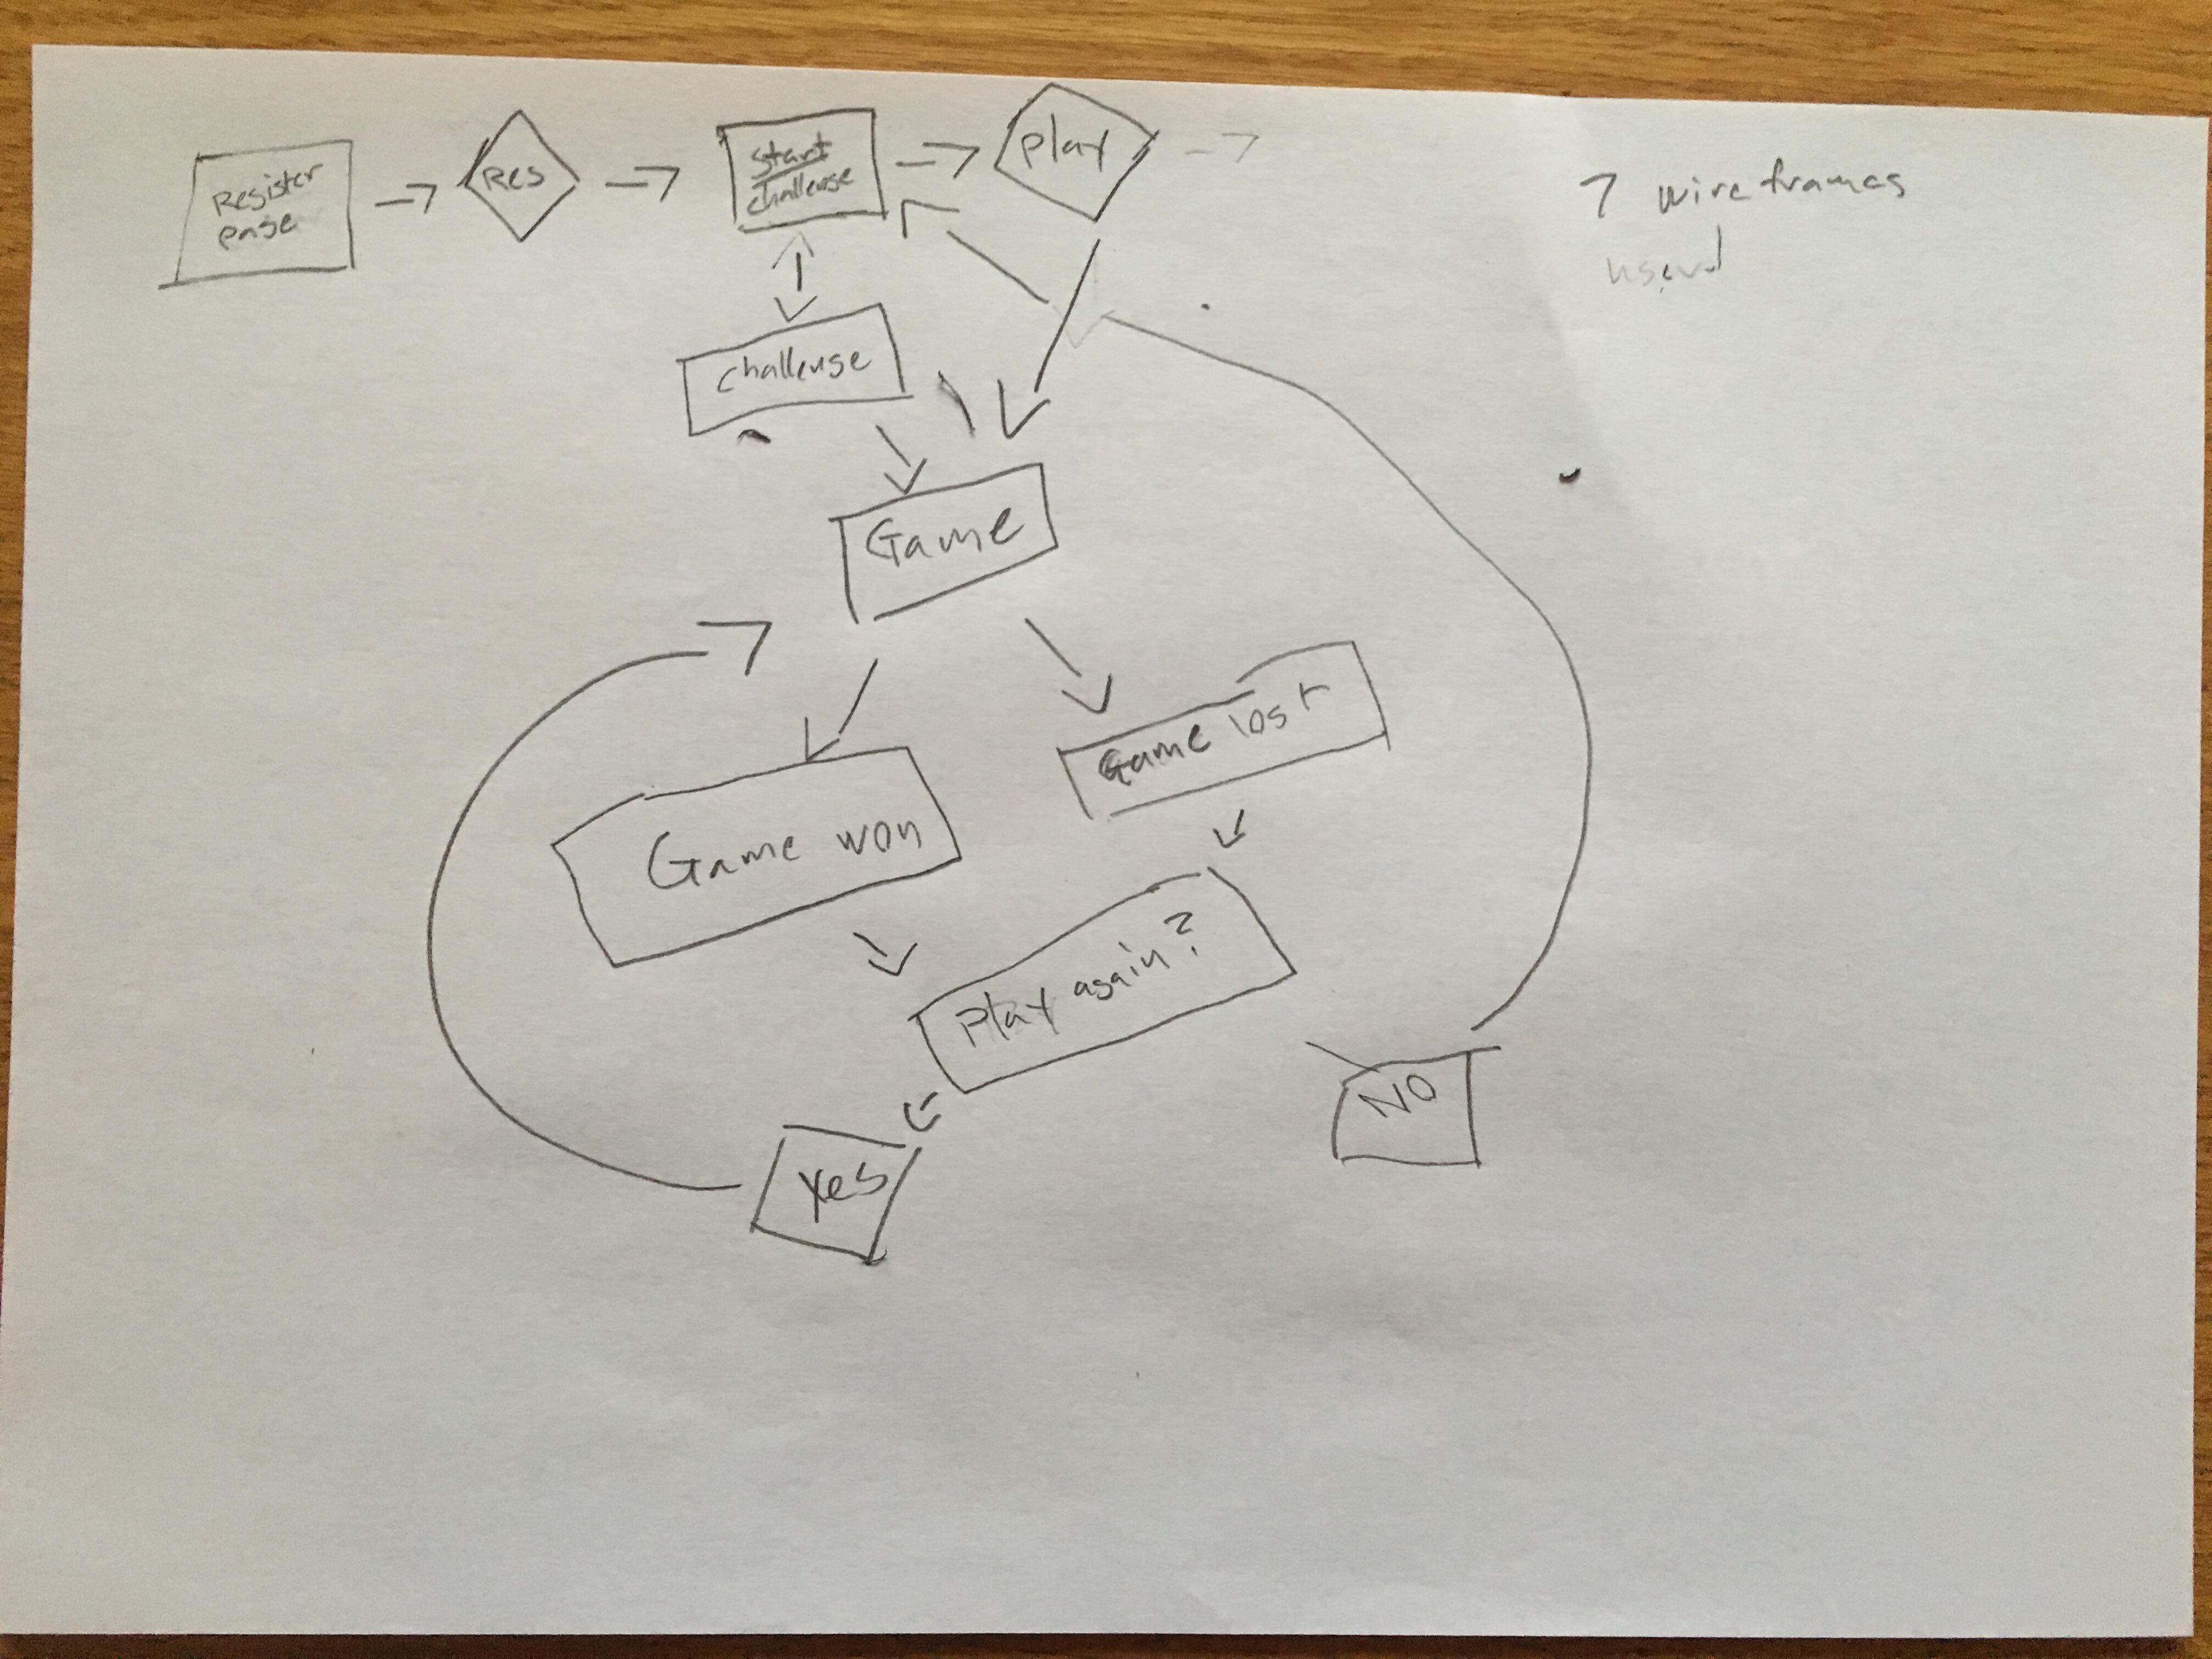 Register
page
Res
start
challenge
Play
7 wireframes
used
challenge
Game
Game lost
Game won
Play again?
NO
Yes